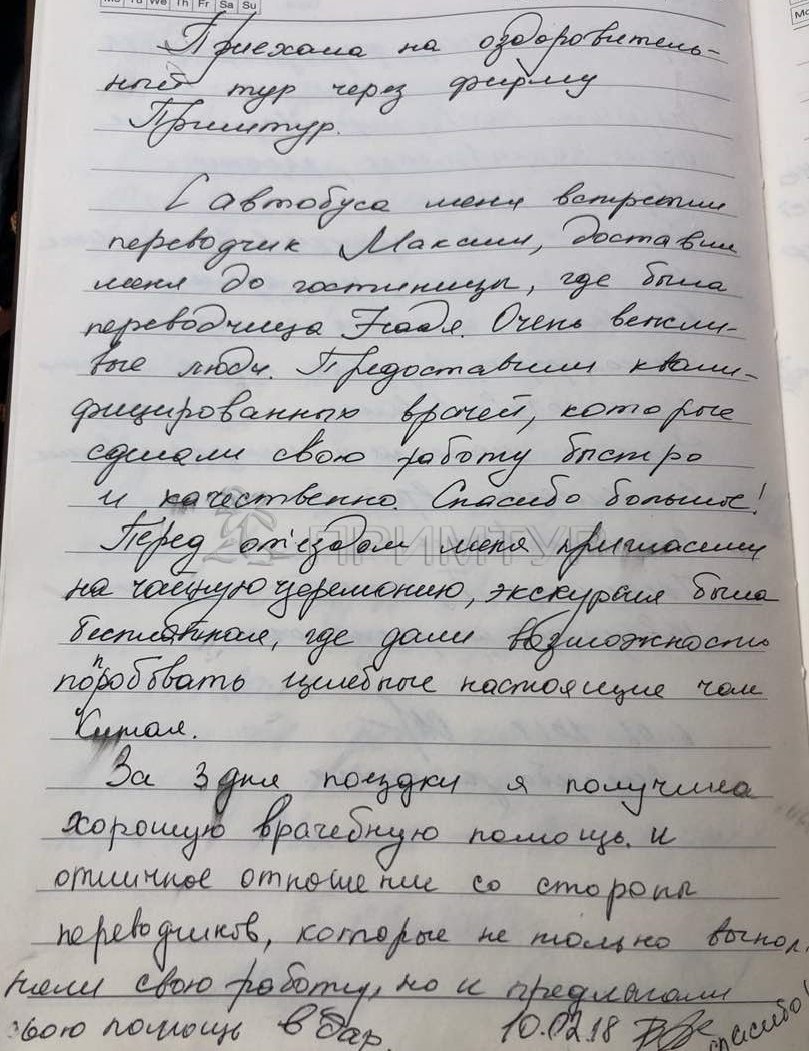 Mo Tu We Th Fr Sa Su
Приехала на оздоровитель-
ный тур через фирму
Примтур.
С автобуса меня встретил
переводчик Максим, доставил
меня до гостиницы, где была
переводчица Надя. Очень вежли-
вые люди. Предоставили квали-
фицированных врачей, которые
сделали свою работу быстро
и качественно. Спасибо большое!
ПРИМТУР
Перед отъездом меня пригласили
на чайную церемонию, экскурсия была
бесплатная, где дали возможность
попробовать целебные настоящие чаи
Китая.
За 3 дня поездки я получила
хорошую врачебную помощь и
отличное отношение со стороны
переводчиков, которые не только выпол-
няли свою работу, но и предлагали
свою помощь в дар.
10.02.18 спасибо!